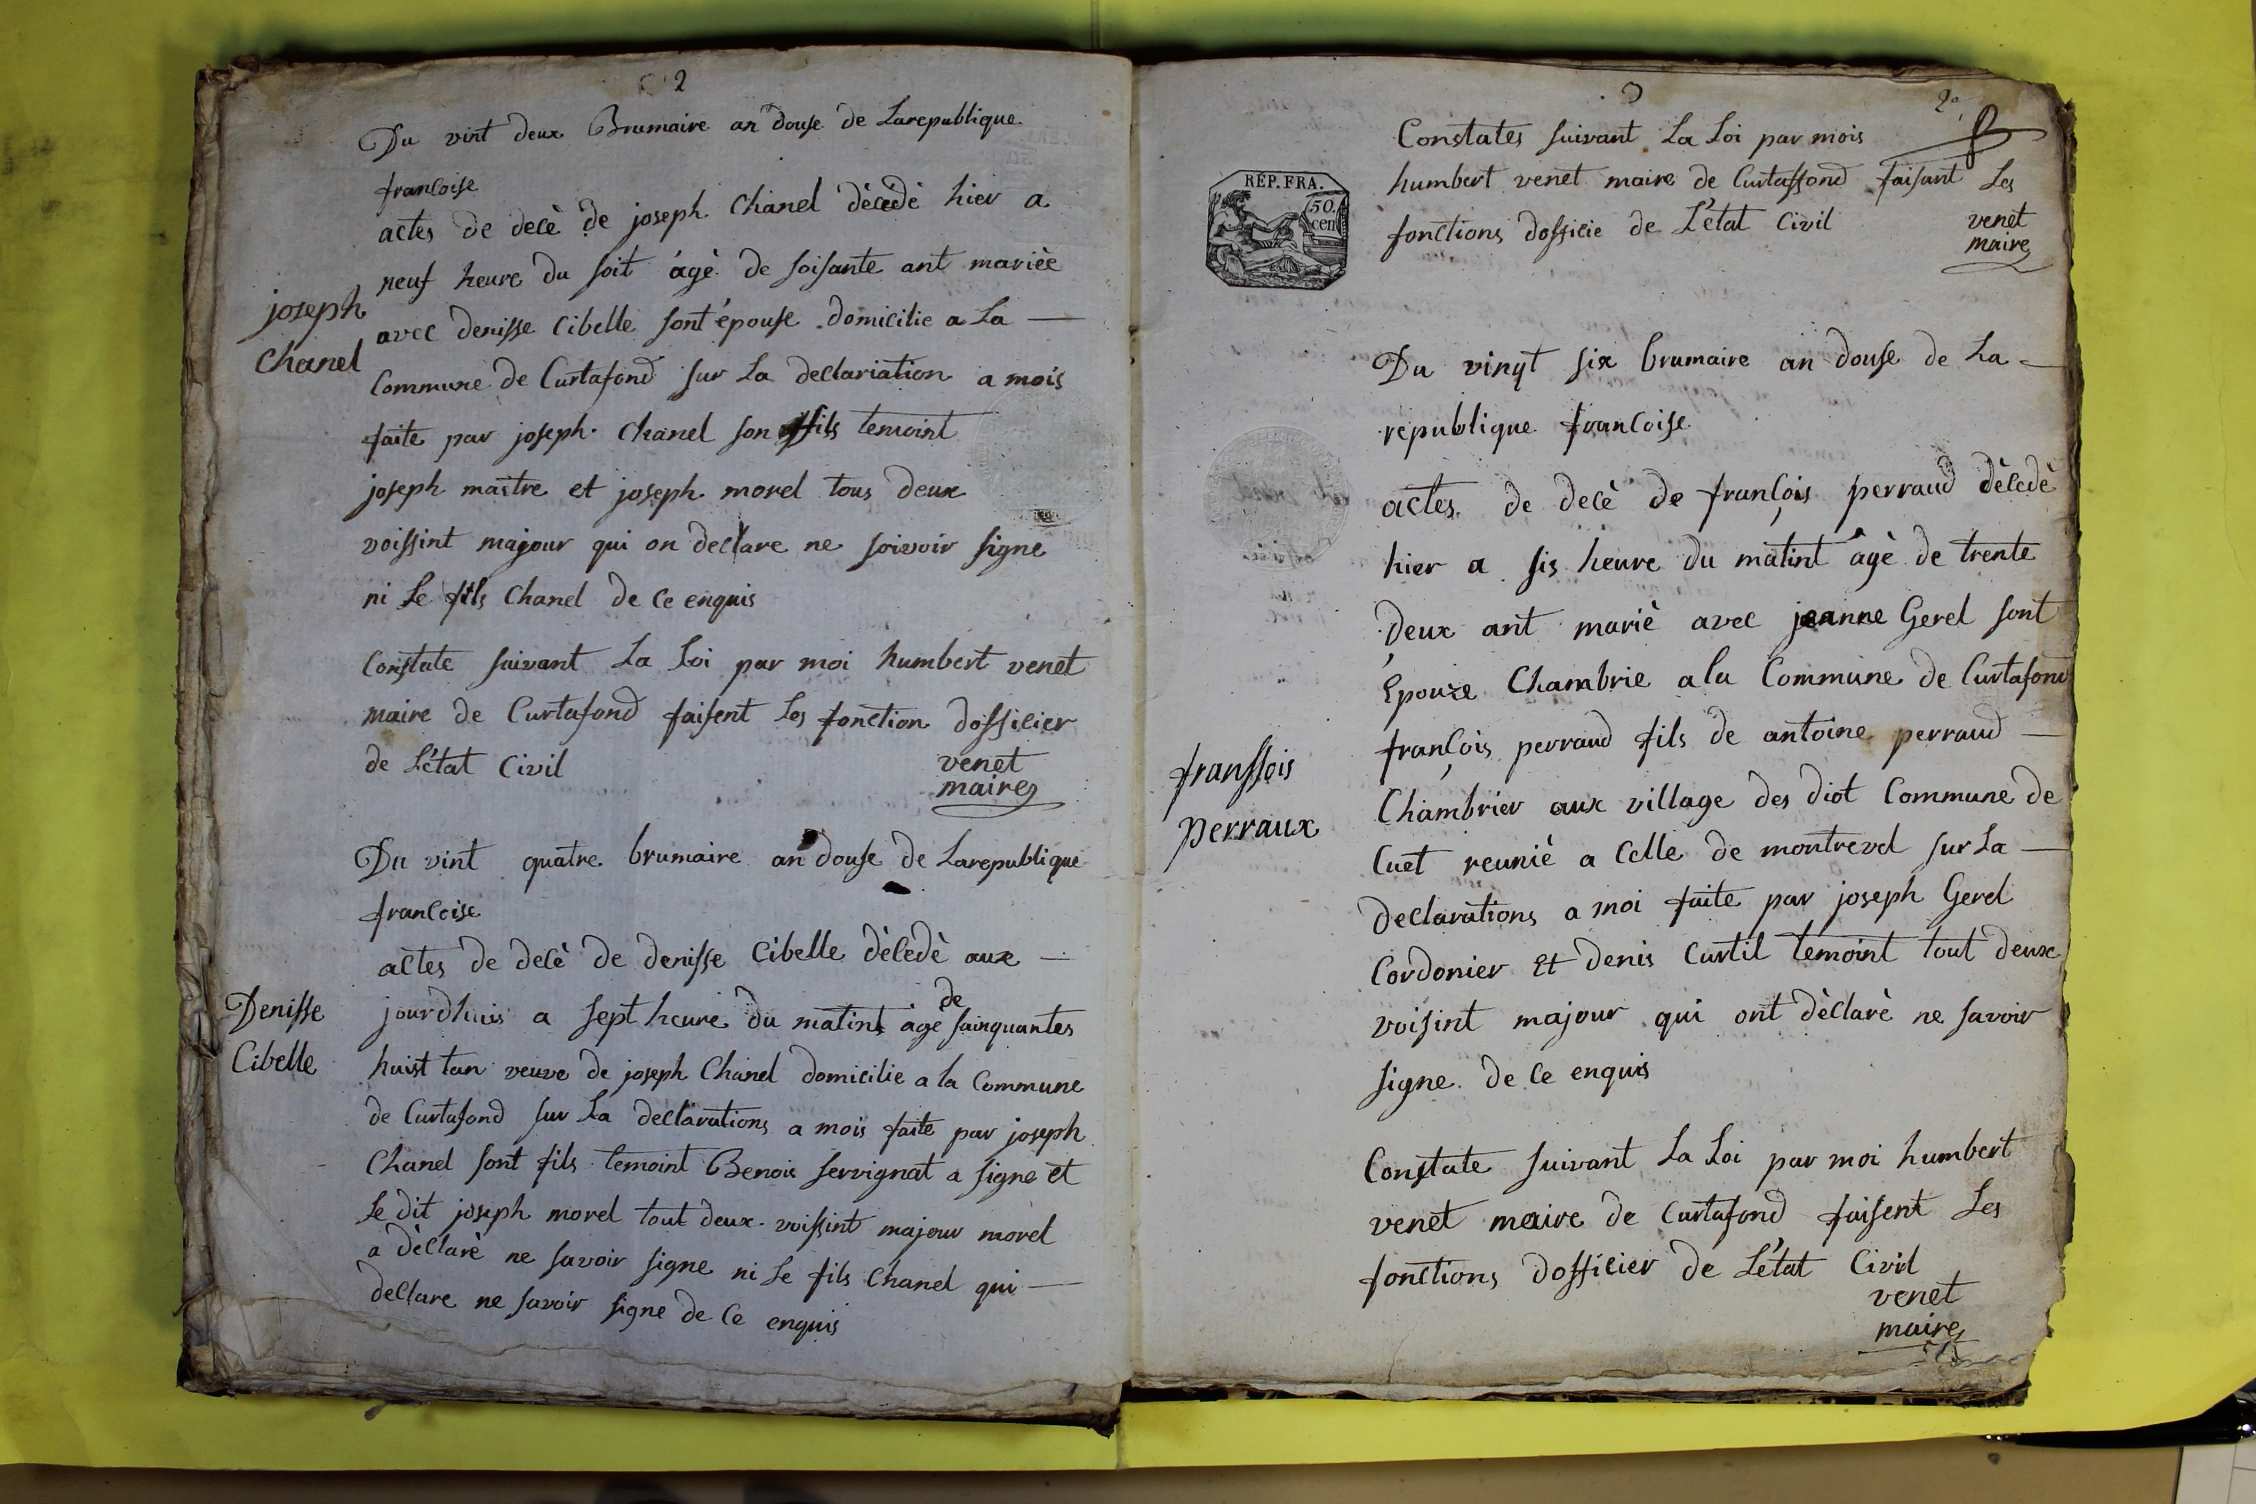 2
Du vint deux Brumaire an douse de Larepublique
francoise
actes de decè de joseph Chanel dècedè hier a
neuf heure du soit àgè de soisante ant marièe
joseph
Chanel
avec denisse Cibelle sont épouse domicilie a La —
Commune de Curtafond sur La declariation a mois
faite par joseph Chanel son fils temoint
joseph maitre et joseph morel tous deux
voissint majour qui on declare ne soivoir signe
ni Le fils Chanel de Ce enquis
Constate suivant La Loi par moi humbert venet
maire de Curtafond faisent Les fonction dofficier
de L'état Civil
venet
maire
Du vint quatre brumaire an douse de Larepublique
francoise
actes de decè de denisse Cibelle dècedè aux —
Denisse
Cibelle
jourdhuis a sept heure du matint àgè de sainquantes
huist tan veuve de joseph Chanel domicilie a la Commune
de Curtafond sur La declarations a mois faite par joseph
Chanel sont fils temoint Benois servignat a signe et
Le dit joseph morel tout deux voissint majour morel
a dèclarè ne savoir signe ni Le fils Chanel qui —
declare ne savoir signe de Ce enquis
2e
Constates suivant La Loi par mois
humbert venet maire de Curtaffond faisant Les
fonctions dofficie de L'état Civil
venet
maire
RÉP. FRA.
50
cen
Du vingt six brumaire an douse de La —
republique francoise
actes de decè de françois perraud dècedè
hier a sis heure du matint àgè de trente
deux ant mariè avec jeanne Gerel sont
épouze Chambrie a la Commune de Curtafond
françois perraud fils de antoine perraud —
franssois
perraux
Chambrier aux village des diot Commune de
Cuet reuniè a Celle de montrevel sur La —
declarations a moi faite par joseph Gerel
Cordonier et denis Curtil temoint tout deux
voisint majour qui ont dèclarè ne savoir
signe de Ce enquis
Constate suivant La Loi par moi humbert
venet maire de Curtafond faisent Les
fonctions dofficier de L'état Civil
venet
maire